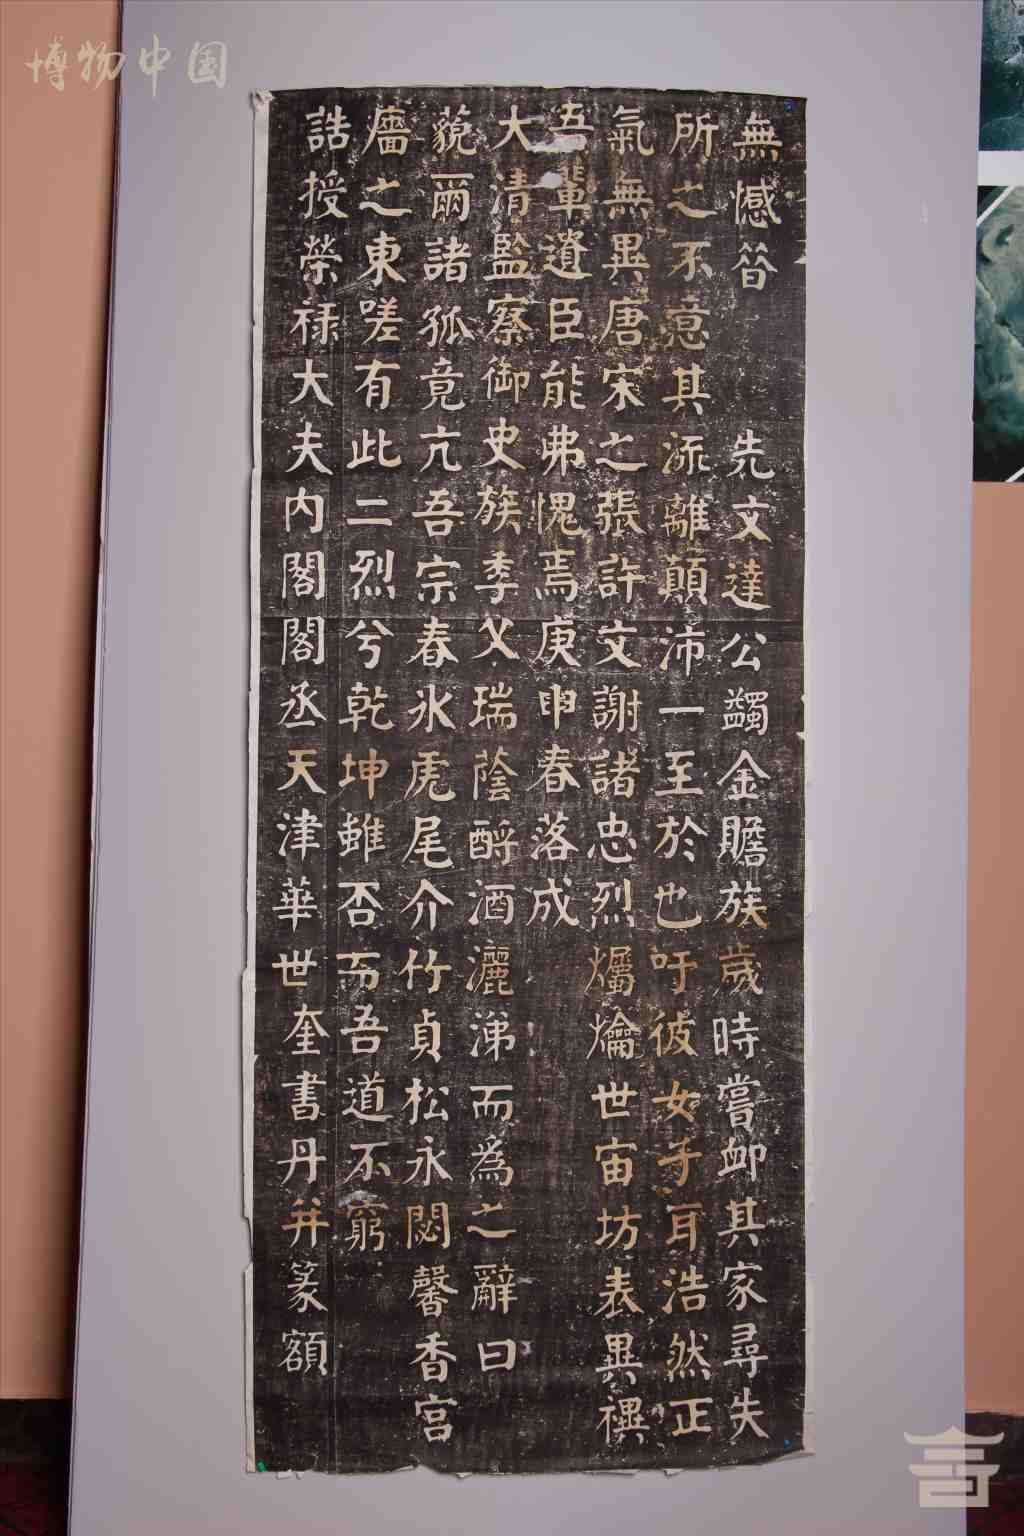 博物中国
無憾昝先文達公蠲金贍族歲時嘗卹其家尋失
所之不意其流離顛沛一至於也吁彼女子耳浩然正
氣無異唐宋之張許文謝諸忠烈爥爚世宙坊表異禩
吾輩遺臣能弗愧焉庚申春落成
大清監察御史族季父瑞蔭酹酒灑涕而為之辭曰
藐爾諸孤竟亢吾宗春冰虎尾介竹貞松永閟馨香宮
牆之東嗟有此二烈兮乾坤雖否而吾道不窮
誥授榮祿大夫內閣閣丞天津華世奎書丹并篆額